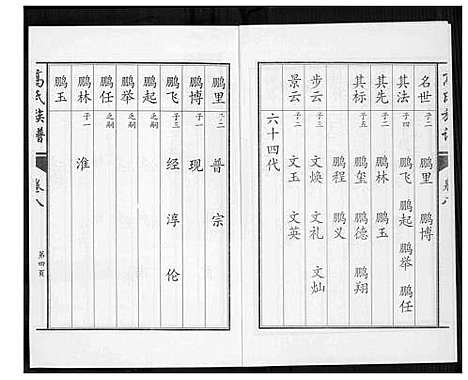 名世 子二 鹏里 鹏博
其法 子四 鹏飞 鹏起 鹏举 鹏任
其先 子二 鹏林 鹏玉
其标 子五 鹏玺 鹏德 鹏翔
鹏程 鹏义
步云 子三 文焕 文礼 文灿
景云 子二 文玉 文英
六十四代
鹏里 子二 普 宗
鹏博 子一 现
鹏飞 子三 经 淳 伦
鹏起 乏嗣
鹏举 乏嗣
鹏任 乏嗣
鹏林 子一 淮
鹏玉
氏族谱 卷八 第四页